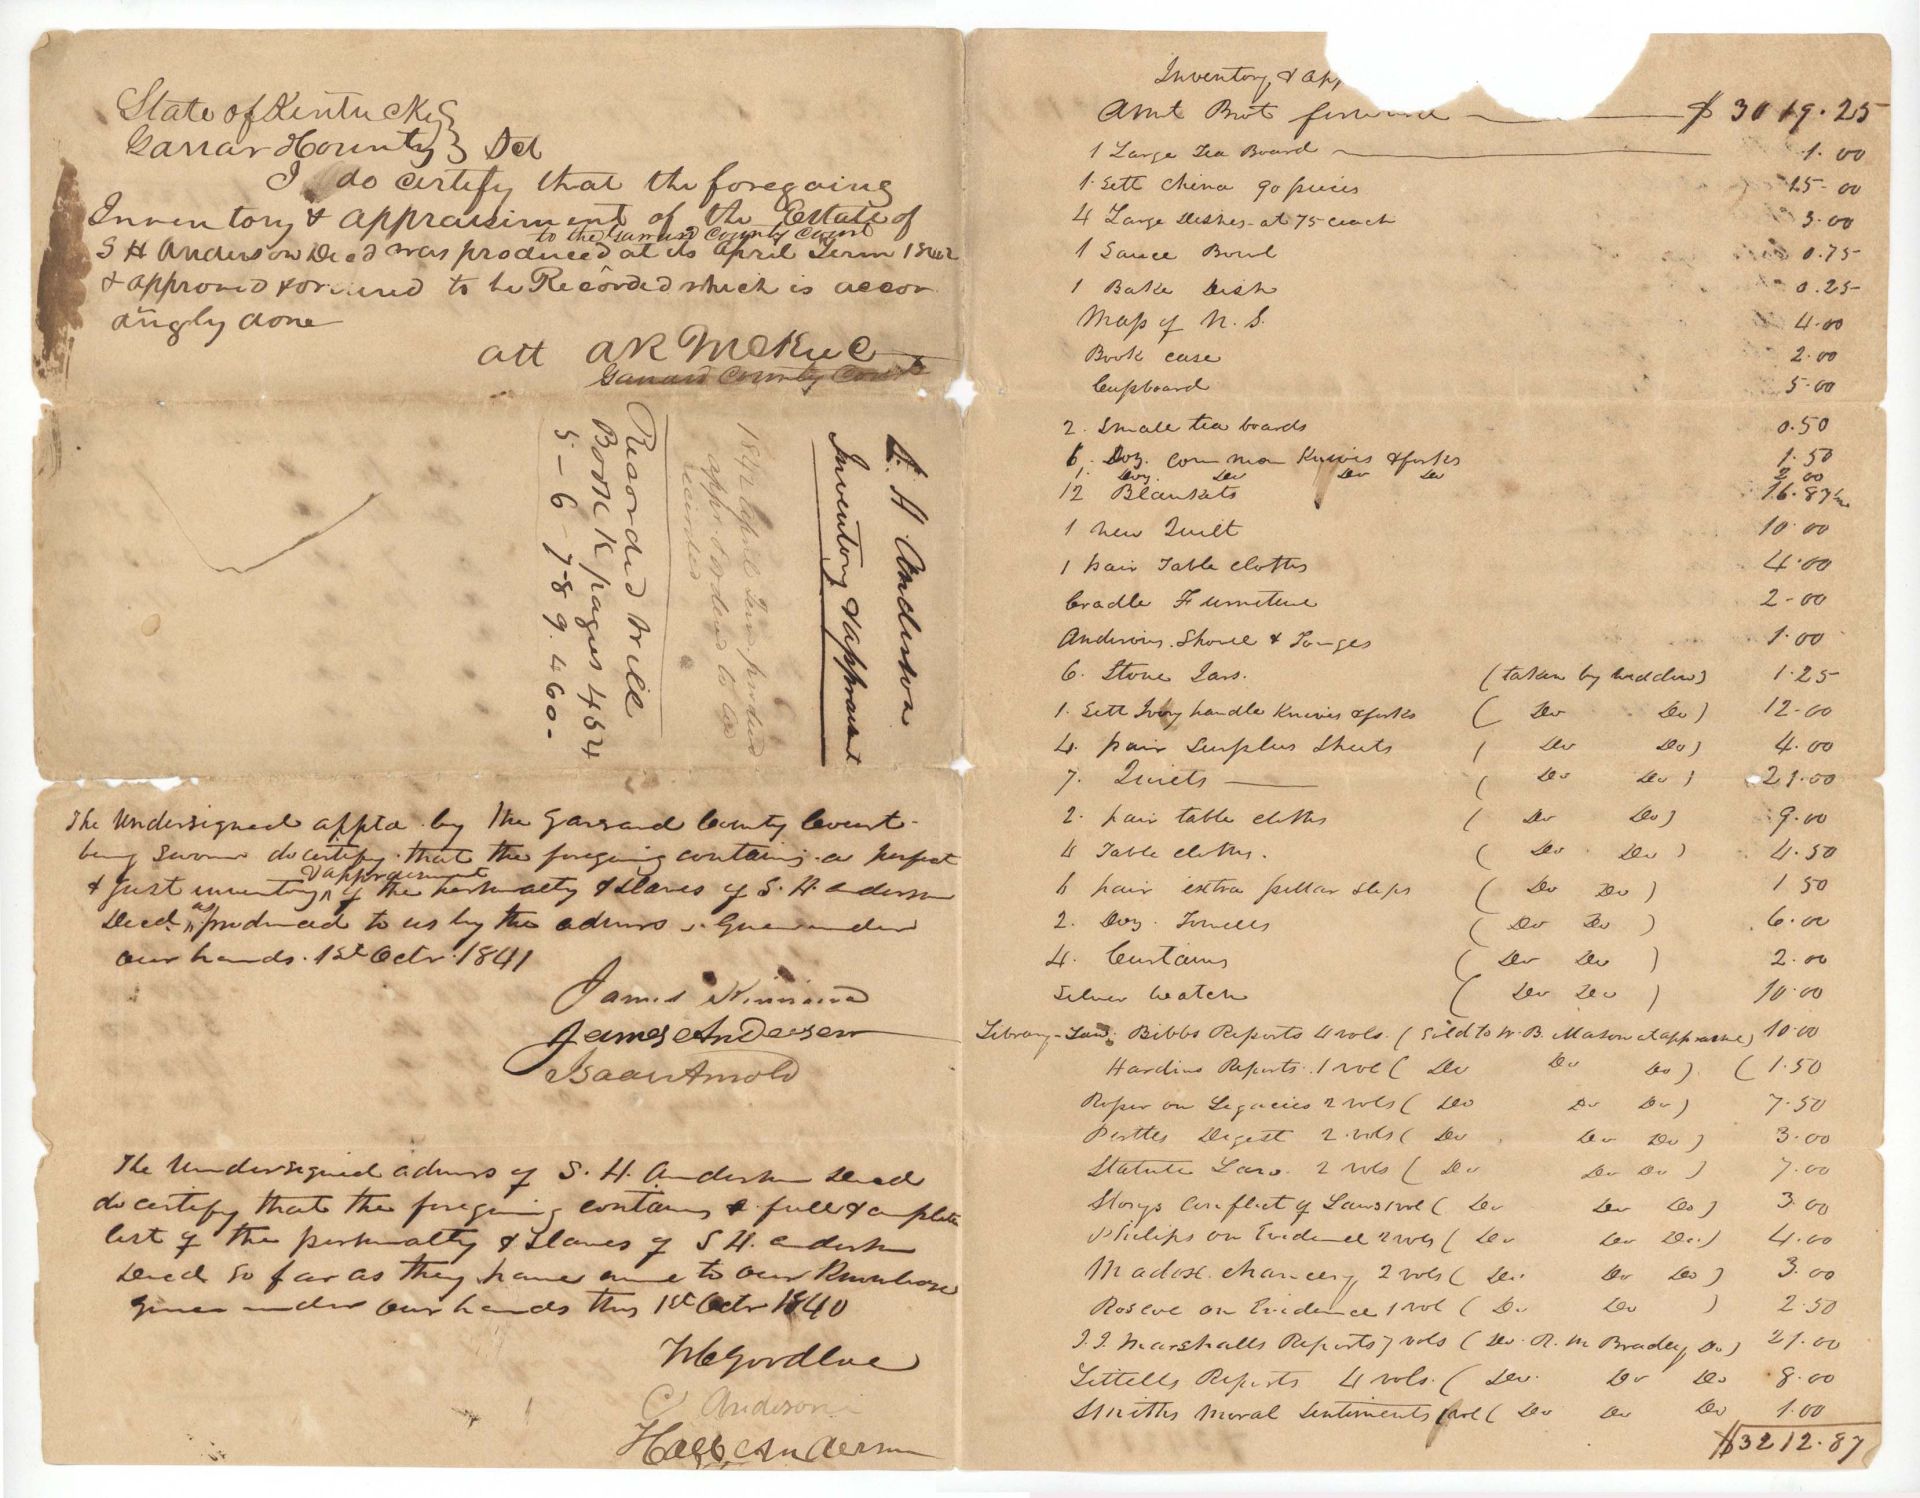 State of Kentucky
Garrard County } Sct
I do certify that the foregoing
Inventory & appraisement of the Estate of
to the Garrard County Court
S H Anderson Decd was produced at its April Term 1842
& approved & ordered to be Recorded which is accor
dingly done
att A R McKee
Garrard County Court
S. H Anderson
Inventory & Appraisment
1842 April Term produced
appr. & ordered to be
recorded
Recorded Will
Book K pages 454
5-6-7-8 9. 460.
The undersigned apptd by the Garrard County Court
being sworn do certify that the foregoing contains a perfect
& appraisement
& just inventory of the personalty & Slaves of S. H. Anderson
Decd as produced to us by the admrs Given under
our hands. 1st Octr. 1841
James
James Anderson
Isaac Arnold
The undersigned admrs of S. H. Anderson Decd
do certify that the foregoing contains a full & complete
list of the personalty & Slaves of S H. Anderson
Decd so far as they have come to our Knowledge
given under our hands this 1st Octr 1840
W C Goodloe
C Anderson
Anderson
Inventory & App
Amt Brot forward $ 3019.25
1 Large Tea Board 1.00
1 Sett China 90 pieces 15-00
4 Large Dishes at 75 each 3.00
1 Sauce Bowl 0.75
1 Bake Dish 0.25
Map of U. S. 4.00
Book case 2.00
Cupboard 5.00
2. Small tea boards 0.50
6. Doz. common Knives & forks 1.50
1. Doz. Do Do Do 2.00
12 Blankets 16.87½
1 new Quilt 10.00
1 pair Table cloths 4.00
Cradle Furniture 2-00
Andirons. Shovel & Tonges 1.00
6. Stone Jars. (taken by widdow) 1.25
1. Sett Ivory handle Knives & forks ( Do Do ) 12-00
4. pair Surplus Sheets ( Do Do ) 4.00
7. Quilts ( Do Do ) 21.00
2. pair table cloths ( Do Do ) 9.00
4 Table cloths. ( Do Do ) 4.50
6 pair extra pillar slips ( Do Do ) 1 50
2. Doz. Towells ( Do Do ) 6.00
4. Curtains ( Do Do ) 2.00
Silver Watch ( Do Do ) 10.00
Library-Law. Bibbs Reports 4 vols. (Sold to W. B. Mason at ) 10.00
Hardins Reports. 1 vol ( Do Do Do ) ( 1.50
Roper on Legacies 2 vols ( Do Do Do ) 7.50
Digest 2. vols ( Do Do Do ) 3.00
Statute Law. 2 vols ( Do Do Do ) 7.00
Storys Conflict of Laws 1 vol ( Do Do Do ) 3.00
Philips on Evidence 2 vols ( Do Do Do ) 4.00
Madox. chancery 2 vols ( Do Do Do ) 3.00
Roscoe on Evidence 1 vol ( Do Do ) 2.50
J. J. Marshalls Reports 7 vols ( Do. R. M Bradley Do ) 21.00
Littells Reports 4 vols. ( Do. Do Do 8.00
Smiths Moral Sentiments 1 vol ( Do Do Do 1.00
$3212.87